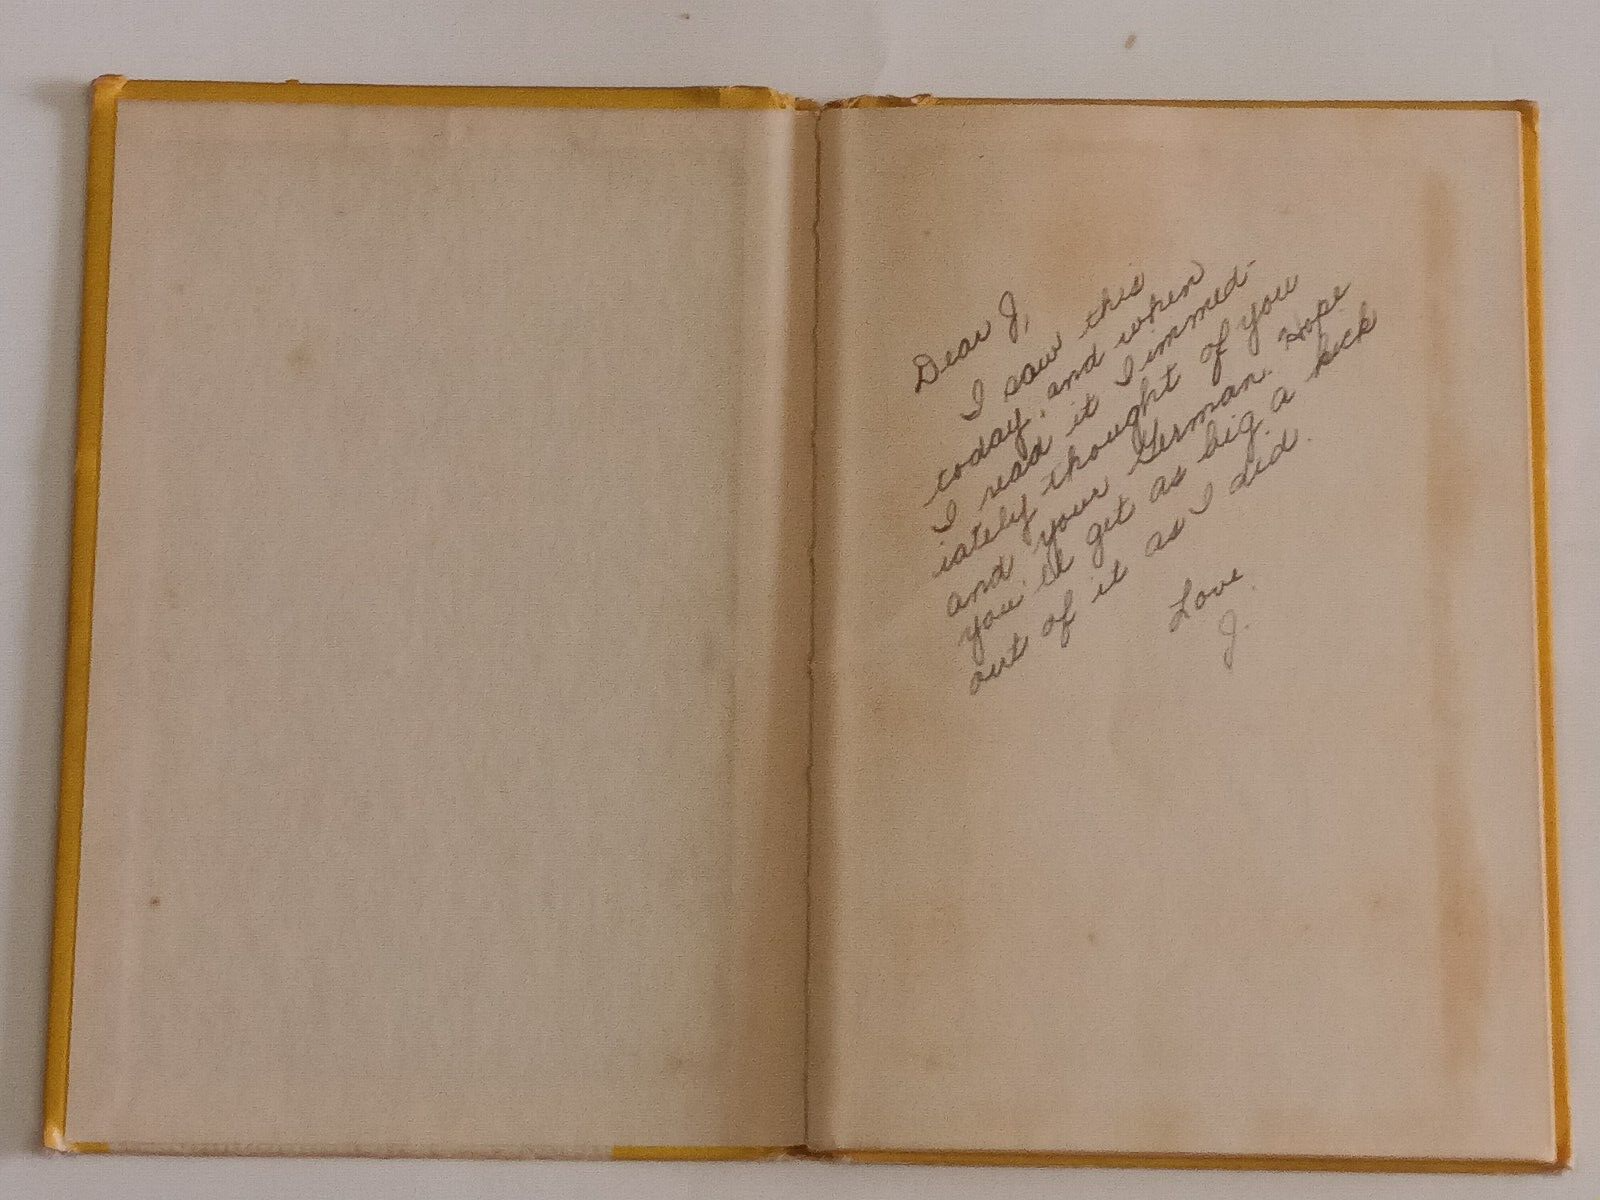 Dear J,
I saw this
today, and when
I read it I immed-
iately thought of you
and your German. Hope
you'll get as big a kick
out of it as I did.
Love
J.